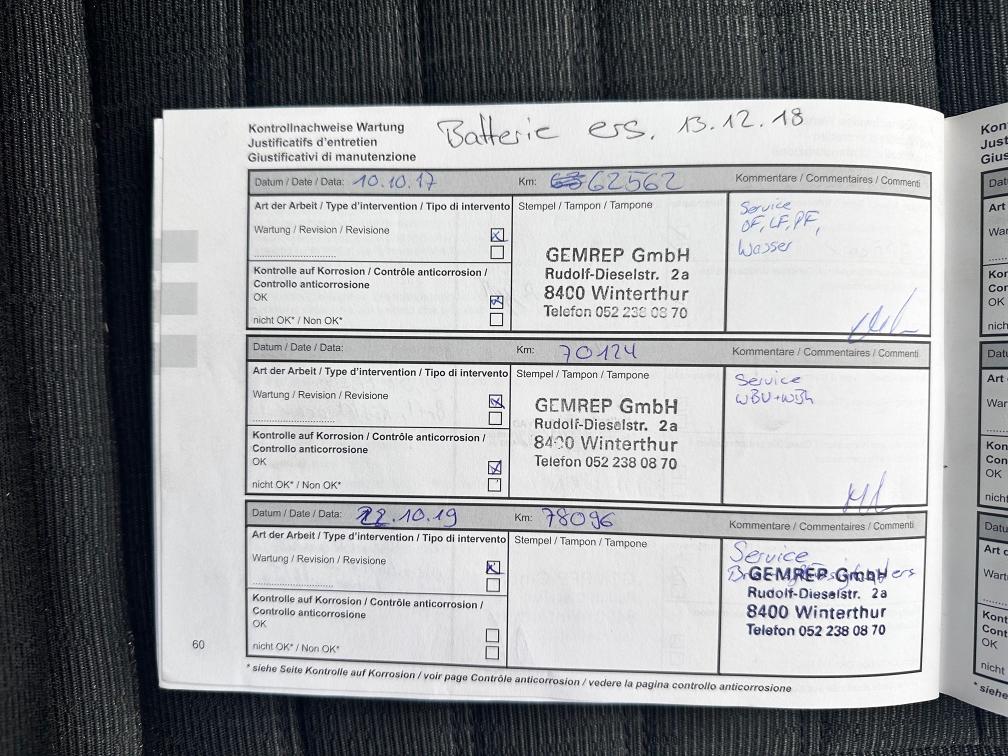 Kontrollnachweise Wartung
Justificatifs d'entretien
Giustificativi di manutenzione
Batterie ers. 13.12.18
Datum / Date / Data: 10.10.17
Km: 62562
Kommentare / Commentaires / Commenti
Art der Arbeit / Type d'intervention / Tipo di intervento
Wartung / Revision / Revisione
Kontrolle auf Korrosion / Contrôle anticorrosion /
Controllo anticorrosione
OK
nicht OK* / Non OK*
Stempel / Tampon / Tampone
GEMREP GmbH
Rudolf-Dieselstr. 2a
8400 Winterthur
Telefon 052 238 08 70
Service
ÖF, LF, PF,
Wasser
Datum / Date / Data:
Km: 70124
Kommentare / Commentaires / Commenti
Art der Arbeit / Type d'intervention / Tipo di intervento
Wartung / Revision / Revisione
Kontrolle auf Korrosion / Contrôle anticorrosion /
Controllo anticorrosione
OK
nicht OK* / Non OK*
Stempel / Tampon / Tampone
GEMREP GmbH
Rudolf-Dieselstr. 2a
8400 Winterthur
Telefon 052 238 08 70
Service
Datum / Date / Data: 22.10.19
Km: 78096
Kommentare / Commentaires / Commenti
Art der Arbeit / Type d'intervention / Tipo di intervento
Wartung / Revision / Revisione
Kontrolle auf Korrosion / Contrôle anticorrosion /
Controllo anticorrosione
OK
nicht OK* / Non OK*
Stempel / Tampon / Tampone
Service
GEMREP GmbH
Rudolf-Dieselstr. 2a
8400 Winterthur
Telefon 052 238 08 70
60
* siehe Seite Kontrolle auf Korrosion / voir page Contrôle anticorrosion / vedere la pagina controllo anticorrosione